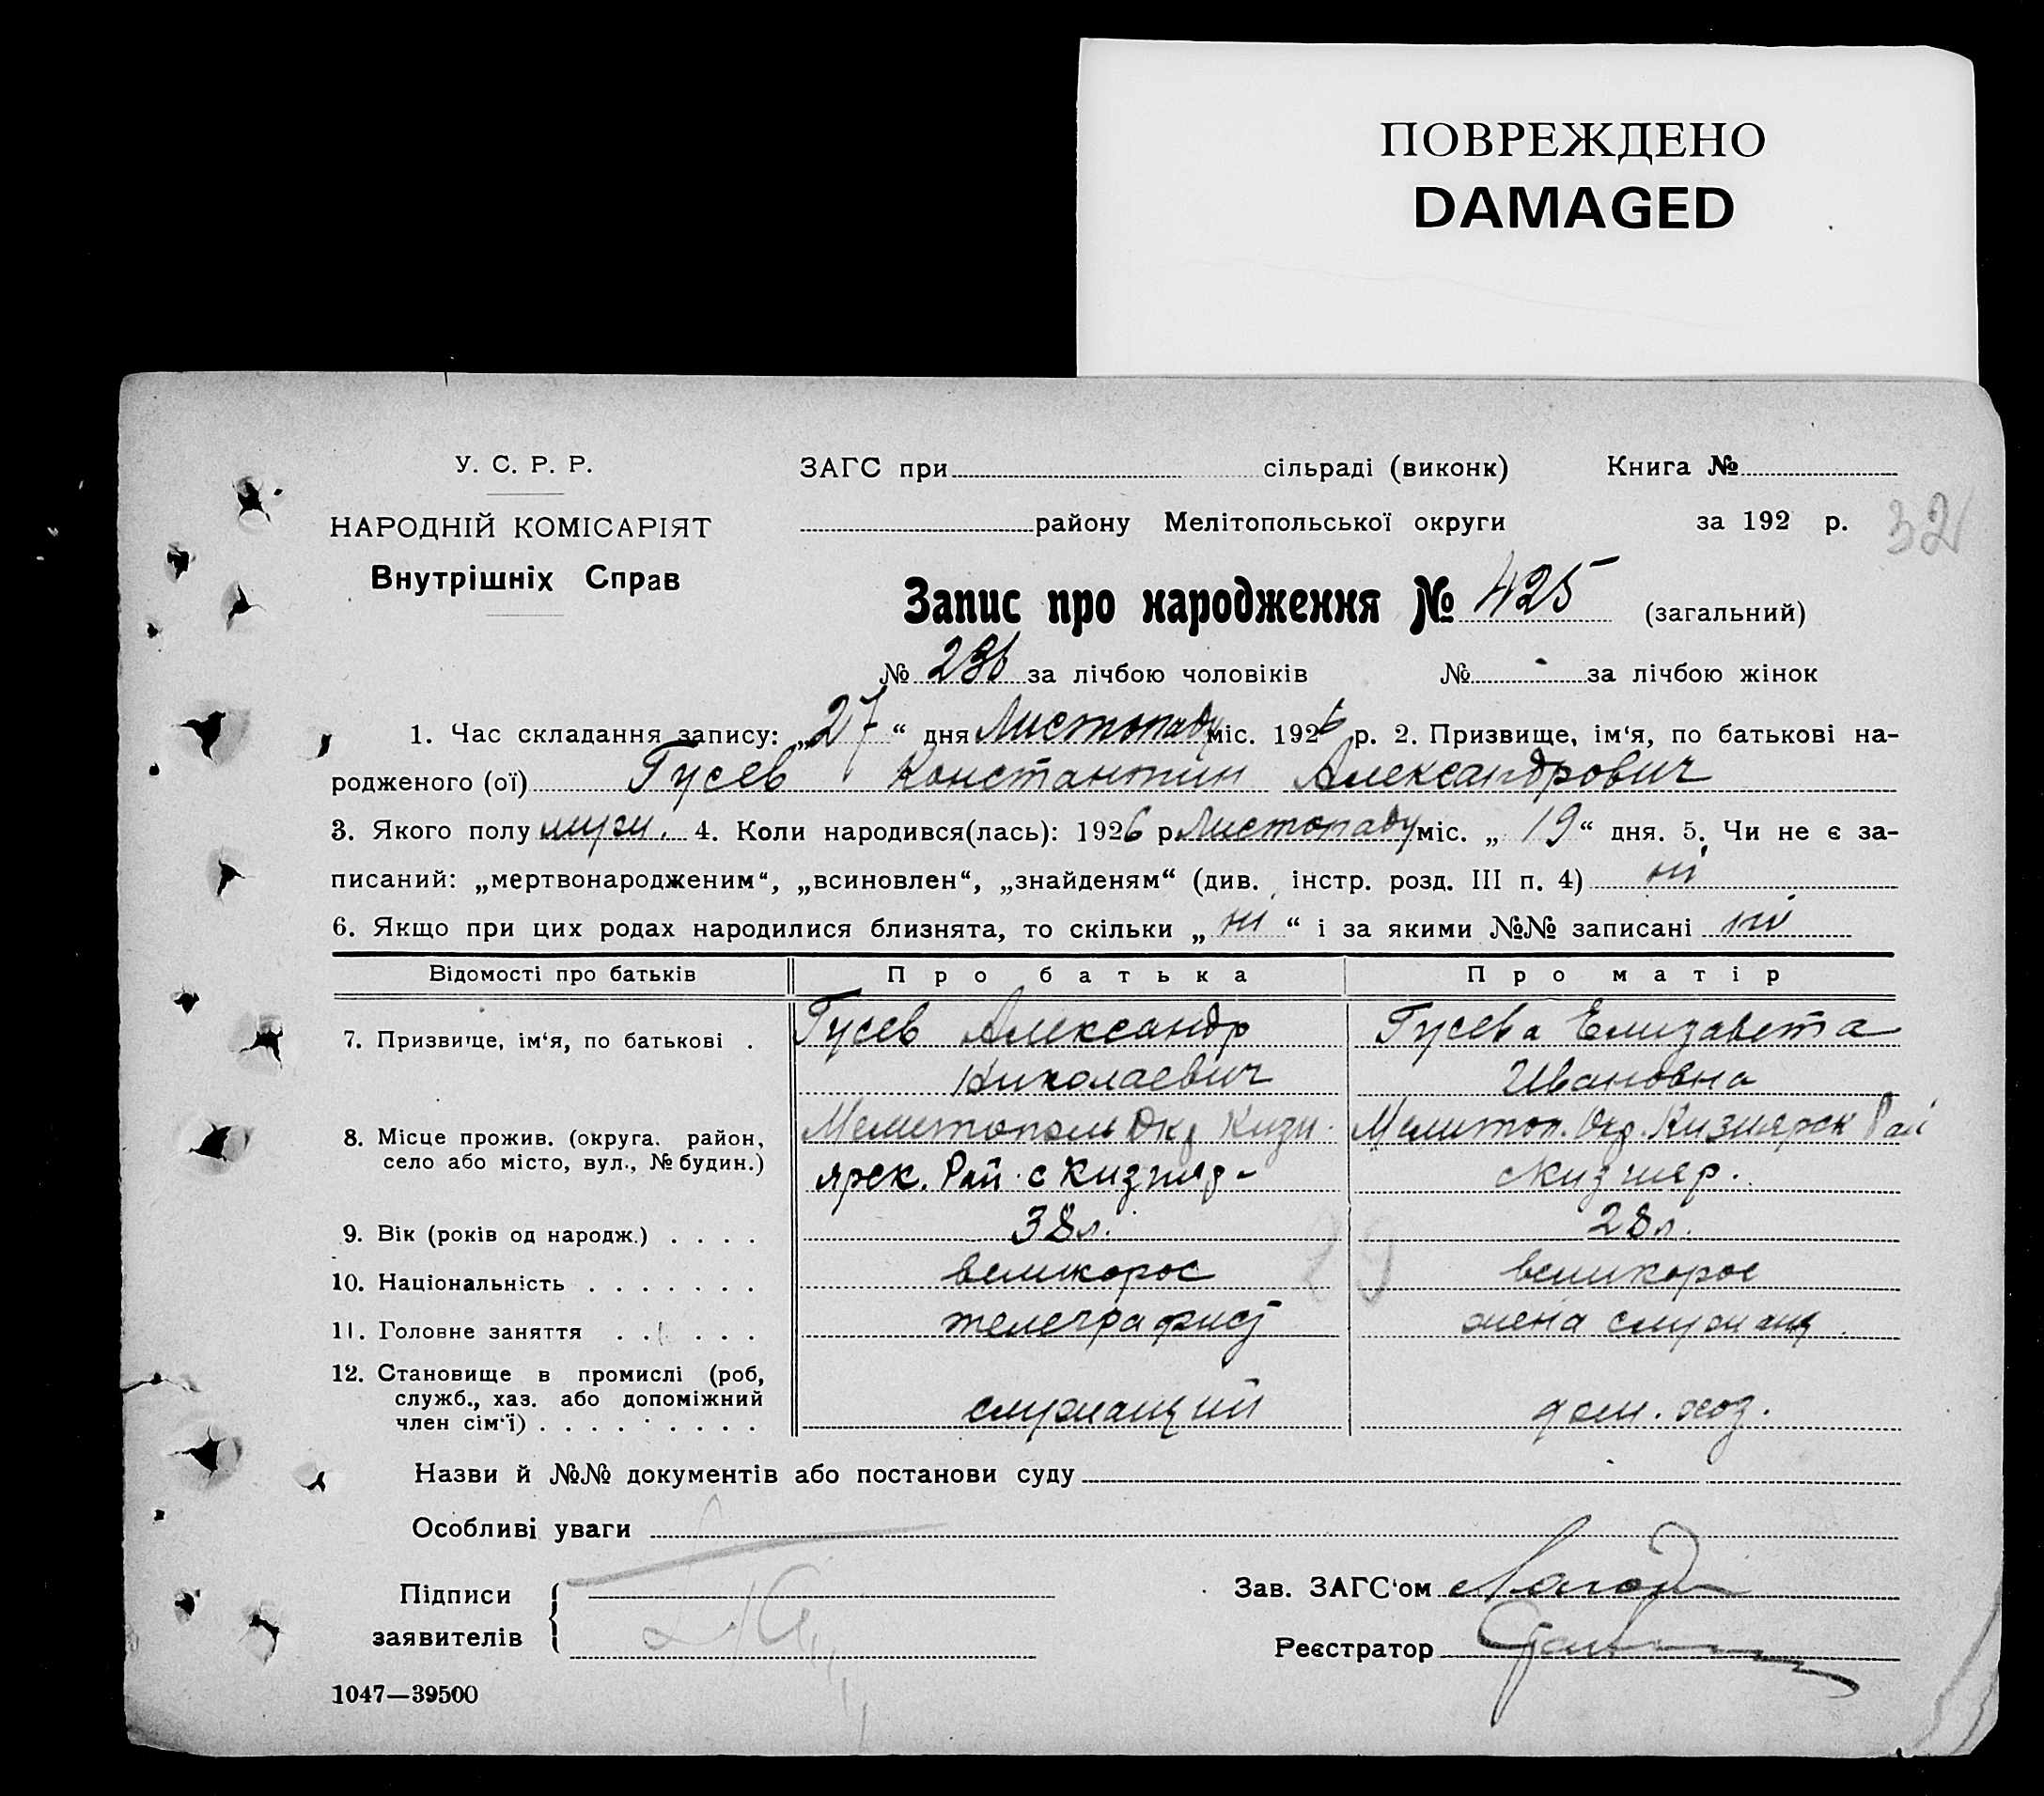 ПОВРЕЖДЕНО
DAMAGED
У. С. Р. Р.
НАРОДНІЙ КОМІСАРІЯТ
Внутрішніх Справ
ЗАГС при сільраді (виконк) Книга №
району Мелітопольської округи за 192 р. 32
Запис про народження № 425 (загальний)
№ 236 за лічбою чоловіків № - за лічбою жінок
1. Час складання запису: „27“ дня Листопаду міс. 1926 р. 2. Призвище, ім‘я, по батькові на-
родженого (ої) Гусев Константин Александрович
3. Якого полу муж. 4. Коли народився(лась): 1926 р. Листопаду міс. „19“ дня. 5. Чи не є за-
писаний: „мертвонародженим“, „всиновлен“, „знайденям“ (див. інстр. розд. III п. 4) ні
6. Якщо при цих родах народилися близнята, то скільки „ні“ і за якими №№ записані ні
Відомості про батьків Про батька Про матір
7. Призвище, ім‘я, по батькові . Гусев Александр Гусева Елизавета
Николаевич Ивановна
8. Місце прожив. (округа. район, Мелитополь Окр Кизи- Мелитоп. Окр. Кизиярск Рай
село або місто, вул., № будин.) ярск. Рай. с Кизияр- с Кизияр.
9. Вік (років од народж.) . . . . 38 л. 28 л.
10. Національність . . . . . . . великорос великорос
19
11. Головне заняття . . . . . телеграфист жена служащ.
12. Становище в промислі (роб,
служб., хаз. або допоміжний служащий дом. хоз.
член сім‘ї) . . . . . . . .
Назви й №№ документів або постанови суду
Особливі уваги
Підписи
заявителів
Зав. ЗАГС‘ом
Реєстратор
1047—39500